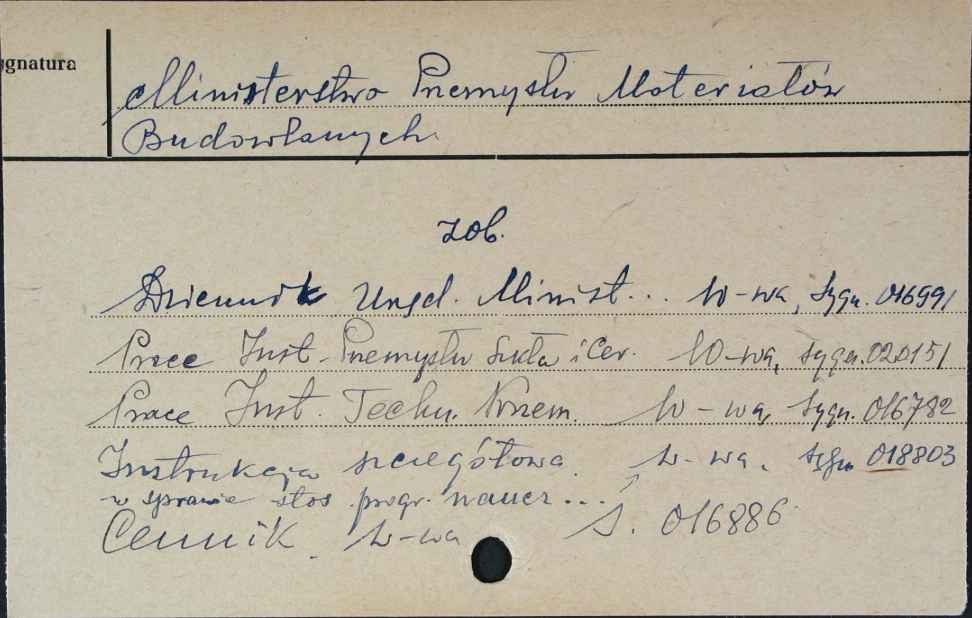 ygnatura
Ministerstwo Przemysłu Materiałów
Budowlanych
zob.
Dziennik Urzęd. Minist... W-wa, Sygn. 016991
Prace Inst. Przemysłu Szkła i Cer. W-wa, sygn. 020151
Prace Inst. Techn. Krzem. W-wa, Sygn. 016782
Instrukcja szczegółowa. W-wa. sygn 018803
w sprawie stos. progr. naucz...
Cennik. W-wa S. 016886